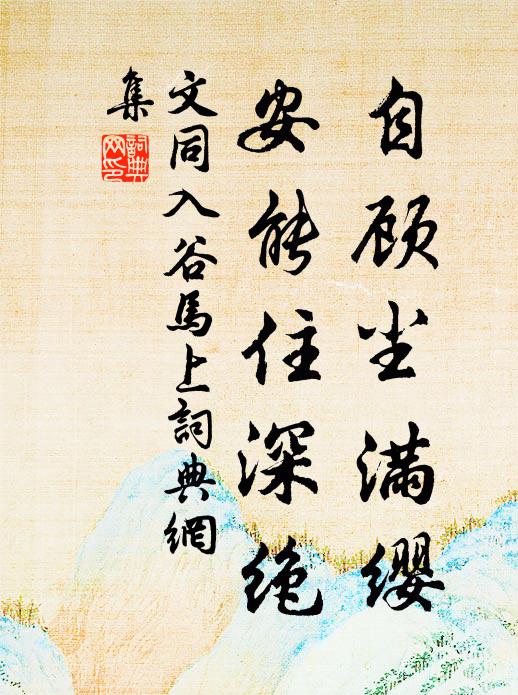 自顾尘满缨
安能住深绝
文同入谷馬上詞典網
集
詞典网印